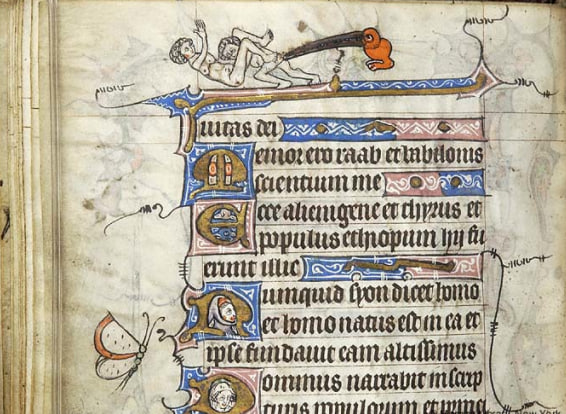 uitas dei
Memor ero raab et babilonis
scientium me
Ecce alienigene et thyrus et
populus ethiopum hij fu
erunt illic
Numquid syon dicet homo
et homo natus est in ea et
ipse fundauit eam altissimus
Dominus narrabit in scrip
turis populorum et princi
New York